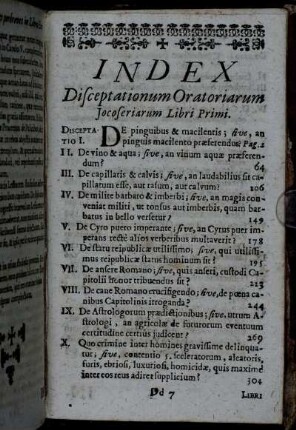 INDEX
Disceptationum Oratoriarum
Jocoseriarum Libri Primi.
DISCEPTA- DE pinguibus & macilentis; sive, an
TIO I. pinguis macilento præferendus? Pag. 1
II. De vino & aqua; sive, an vinum aquæ præferen-
dum? 64
III. De capillatis & calvis; sive, an laudabilius sit ca-
pillatum esse, aut rasum, aut calvum? 106
IV. De milite barbato & imberbi; sive, an magis con-
veniat militi, ut tonsus aut imberbis, quam bar-
batus in bello versetur? 149
V. De Cyro puero imperante; sive, an Cyrus puer im-
perans recte alios verberibus multaverit? 178
VI. De statu reipublicæ utilissimo; sive, qui utilissi-
mus reipublicæ status hominum sit? 195
VII. De ansere Romano; sive, quis anseri, custodi Ca-
pitolii honor tribuendus sit? 213
VIII. De cane Romano crucifigendo; sive, de pœna ca-
nibus Capitolinis irroganda? 244
IX. De Astrologorum prædictionibus; sive, utrum A-
strologi, an agricolæ de futurorum eventuum
certitudine certius judicent? 269
X. Quo crimine inter homines gravissime delinqua-
tur; sive, contentio 5. sceleratorum, aleatoris,
furis, ebriosi, luxuriosi, homicidæ, quis maxime
inter eos reus adiret supplicium? 304
Dd 7 LIBRI